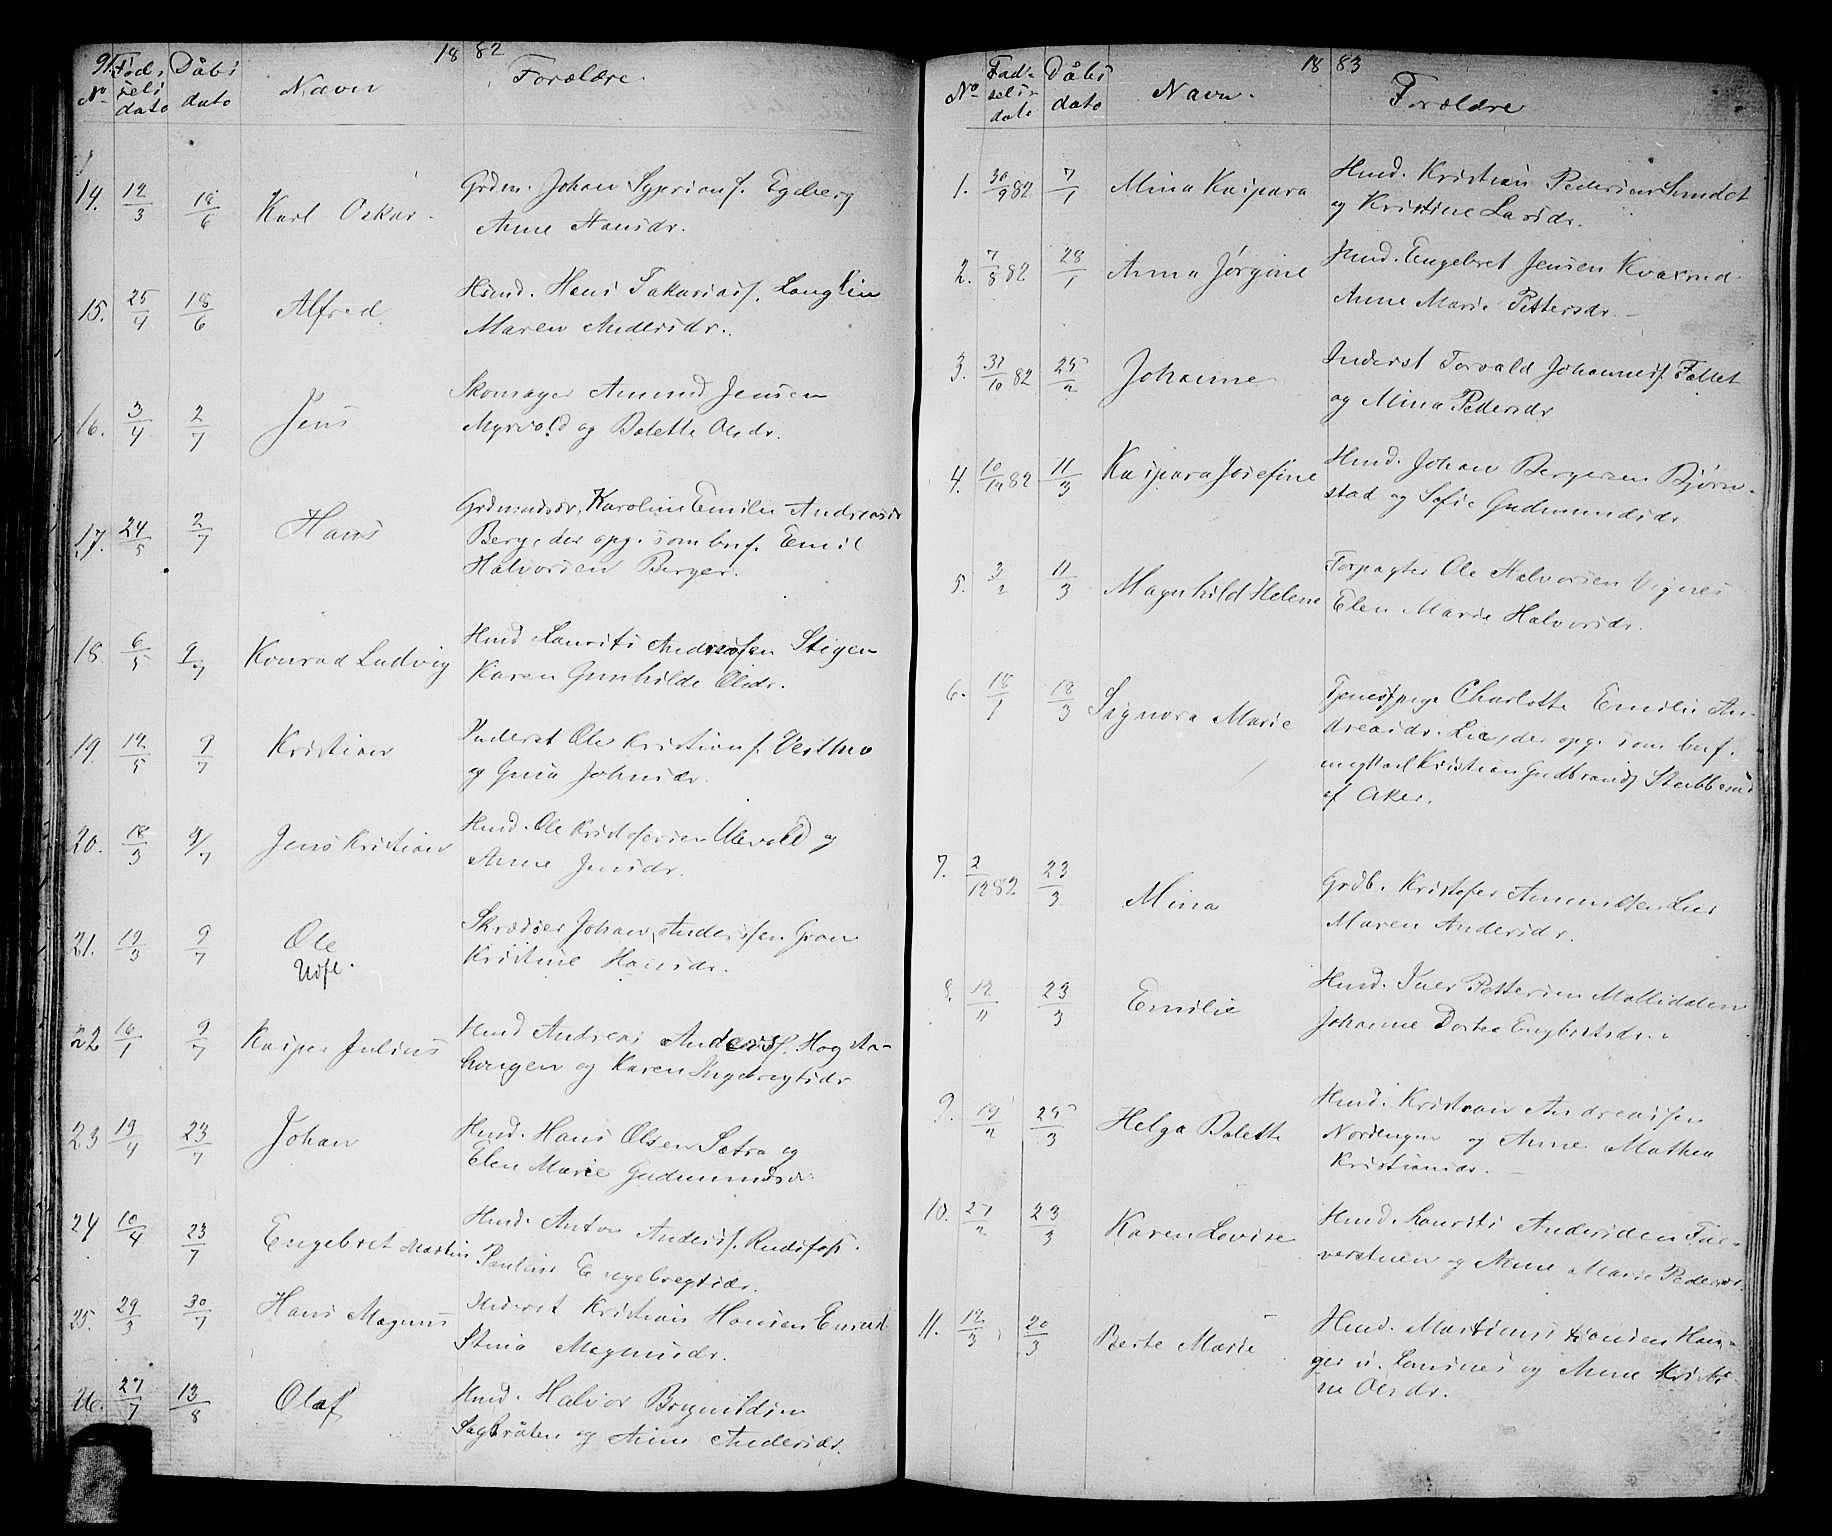 91.
18 82
No
Føds
sels
dato
Dåbs
dato
Navn
Forældre
14. 12/3 18/6 Karl Oskar.
Grdm. Johan Syprians. Egeberg
Anne Hansdr.
15. 25/4 18/6 Alfred
Husmd. Hans Sakarias.
Maren Andersdr.
16. 3/4 2/7 Jens
Skomager Amund Jensen
Myrvold og Bolette Olsdr.
17. 24/5 2/7 Hans
Karoline Emilie Andreasdr
Berg, der opg. som buf. Emil
Halvorsen Berger.
18. 6/5 9/7 Konrad Ludvig
Husmd Laurits Andreassen Stigen
Karen Gunhilde Olsdr.
19. 12/5 9/7 Kristian
Inderst Ole Kristians.
og Gina Johnsdr.
20. 18/3 9/7 Jens Kristian
Husmd. Ole Kristofersen Ulevold og
Anne Jensdr.
21. 19/3 9/7 Ole
Udf.
Skrædder Johan Anderssen Gran
Kristine Hansdr.
22 16/1 9/7 Kasper Julius
Husmd Andreas Anderss.
og Karen Ingebregtsdr
23 19/4 23/7 Johan
Husmd. Hans Olsen Sætra og
Elen Marie Gudmundsdr.
24 10/4 23/7 Engebret Martin
Husmd. Anton Anderss. Rudsfos.
Pauline Engebregtsdr.
25. 29/3 30/7 Hans Magnus
Inderst Kristian Hansen
Stina Magnusdr.
26. 27/7 13/8 Olaf
Husmd. Halvor
Sagbråten og Anne Andersdr.
18 83
No
Føds-
sels-
dato
Dåbs
dato
Navn.
Forældre
1. 30/9 82 7/1 Mina Kaspara
Husmd. Kristian Pedersen Sundet
og Kristine Larsdr.
2. 7/8 82 28/1 Anna Jørgine
Husmd. Engebret Jensen
Anne Marie Pettersdr.
3. 31/10 82 25/2 Johanne
Inderst Torvald Johanness.
og Mina Pedersdr
4. 10/12 82 11/3 Kaspara Josefine
Husmd. Johan Bergersen Bjørn-
stad og Sofie Gudmundsdr.
5. 3/2 11/3 Magnhild Helene
Forpagter Ole Halvorsen Vignes
Elen Marie Halvorsdr.
6. 18/1 18/3 Signora Marie
Tjenestpige Charlotte Emilie An-
dreasdr. Lia, der opg. som buf.
Kristian Gudbrands. Stubberud
af Aker.
7. 2/12 82 23/3 Mina
Grdb. Kristofer Amundsen Lier
Maren Andersdr.
8. 12/11 23/3 Emilie
Husmd. Iver Pettersen
Johanne Dortea Engebretsdr.
9. 19/2 25/3 Helga Bolette
Husmd. Kristian Andreassen
Nordengen og Anne Mathea
Kristiansdr.
10. 27/2 23/3 Karen Lovise
Husmd. Laurits Andersden
og Anne Marie Pedersdr.
11. 12/3 20/3 Berte Marie
Husmd.
og Anne Kristi-
ne Olsdr.